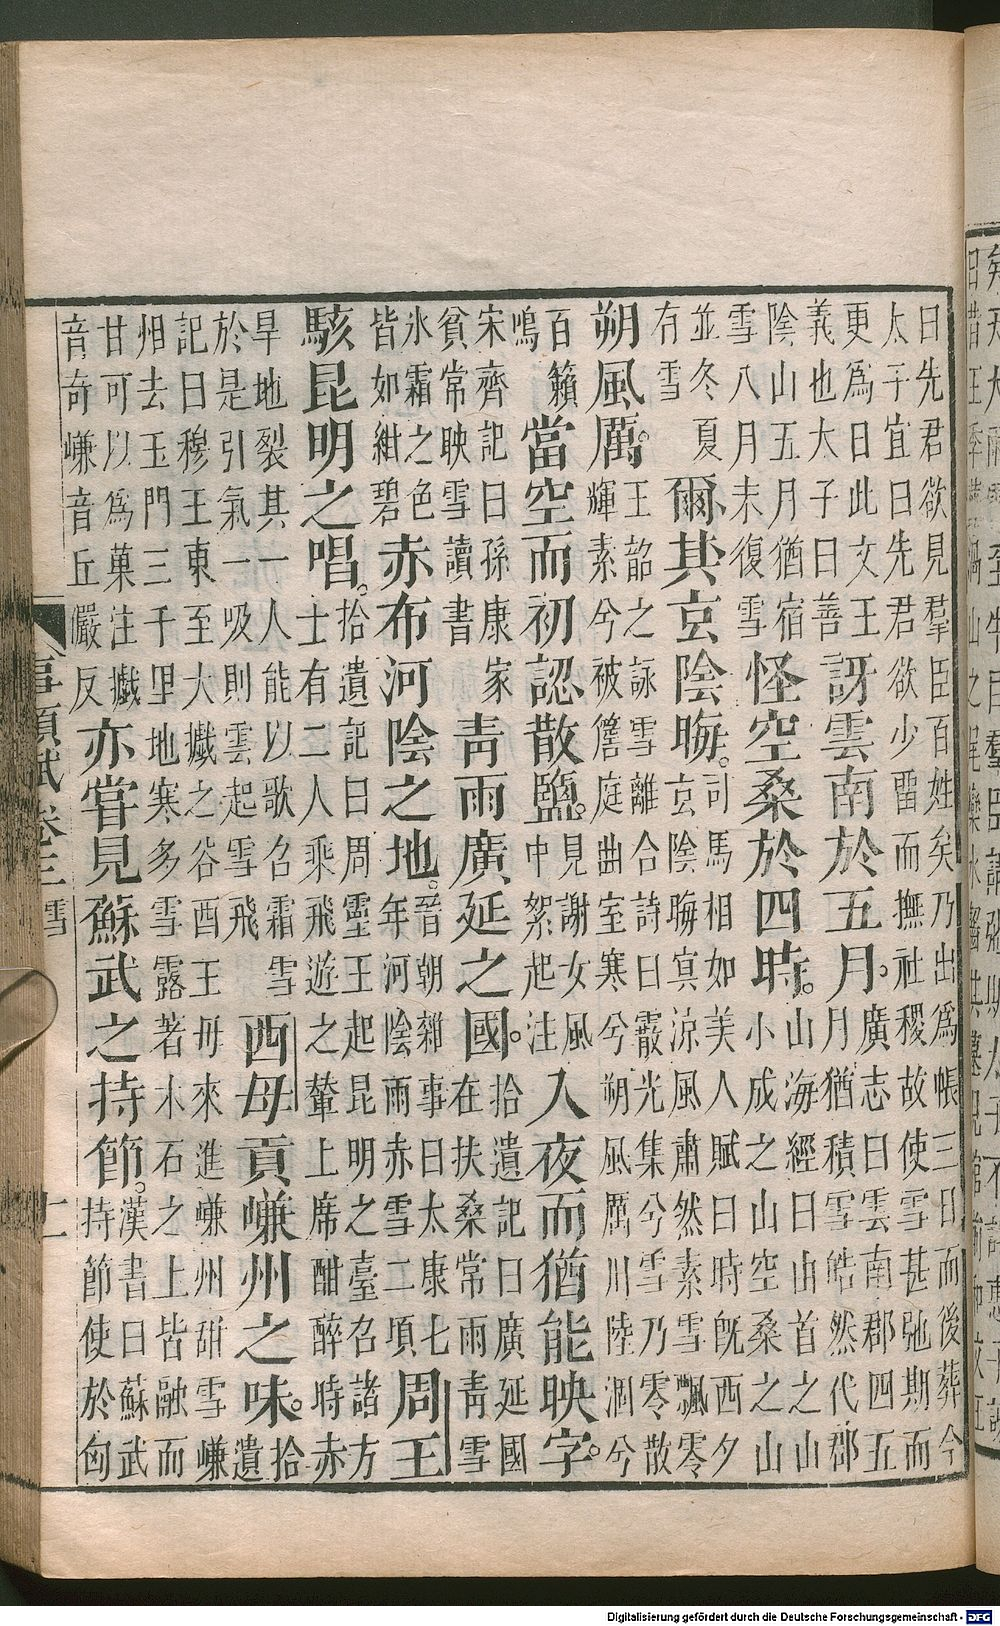 日先君欲見羣臣百姓矣乃出爲帳三日而後葬今
太子宜曰先君欲少留而撫社稷故使雪甚弛期而
更爲日此文王
義也太子曰善
訝雲南於五月。
廣志曰雲南郡四五
月猶積雪皓然代郡
陰山五月猶宿
雪八月末復雪
怪空桑於四時。
山海經曰山首之山
小成之山空桑之山
並冬夏
有雪
爾其玄陰晦。
司馬相如美人賦曰時旣西夕
玄陰晦㝠涼風肅然素雪飄零
朔風厲。
王韶之詠雪離合詩曰霰光集兮雪乃零散
輝素兮被簷庭曲室寒兮朔風厲川陸涸兮
百籟
鳴
當空而初認散鹽。
見謝女風
中絮起注
入夜而猶能映字。
宋齊記曰孫康家
貧常映雪讀書
青雨廣延之國。
拾遺記曰廣延國
在扶桑常雨青雪
氷霜之色
皆如紺碧
赤布河陰之地。
晉朝雜事曰太康七
年河陰雨赤雪二頃
周王
駭昆明之唱。
拾遺記曰周靈王起昆明之臺召諸方
士有二人乘飛遊之輦上席酣醉時赤
旱地裂其一人能以歌召霜雪
於是引氣一吸則雲起雪飛
西母貢嵰州之味。
拾
遺
記曰穆王東至大㩻之谷酉王母來進嵰州甜雪嵰
州去玉門三千里地寒多雪露著木石之上皆融而
甘可以爲菓注㩻
音奇嵰音丘儼反
亦嘗見蘇武之持節。
漢書曰蘇武
持節使於匈
事類賦卷三 雪 十一
Digitalisierung gefördert durch die Deutsche Forschungsgemeinschaft - DFG